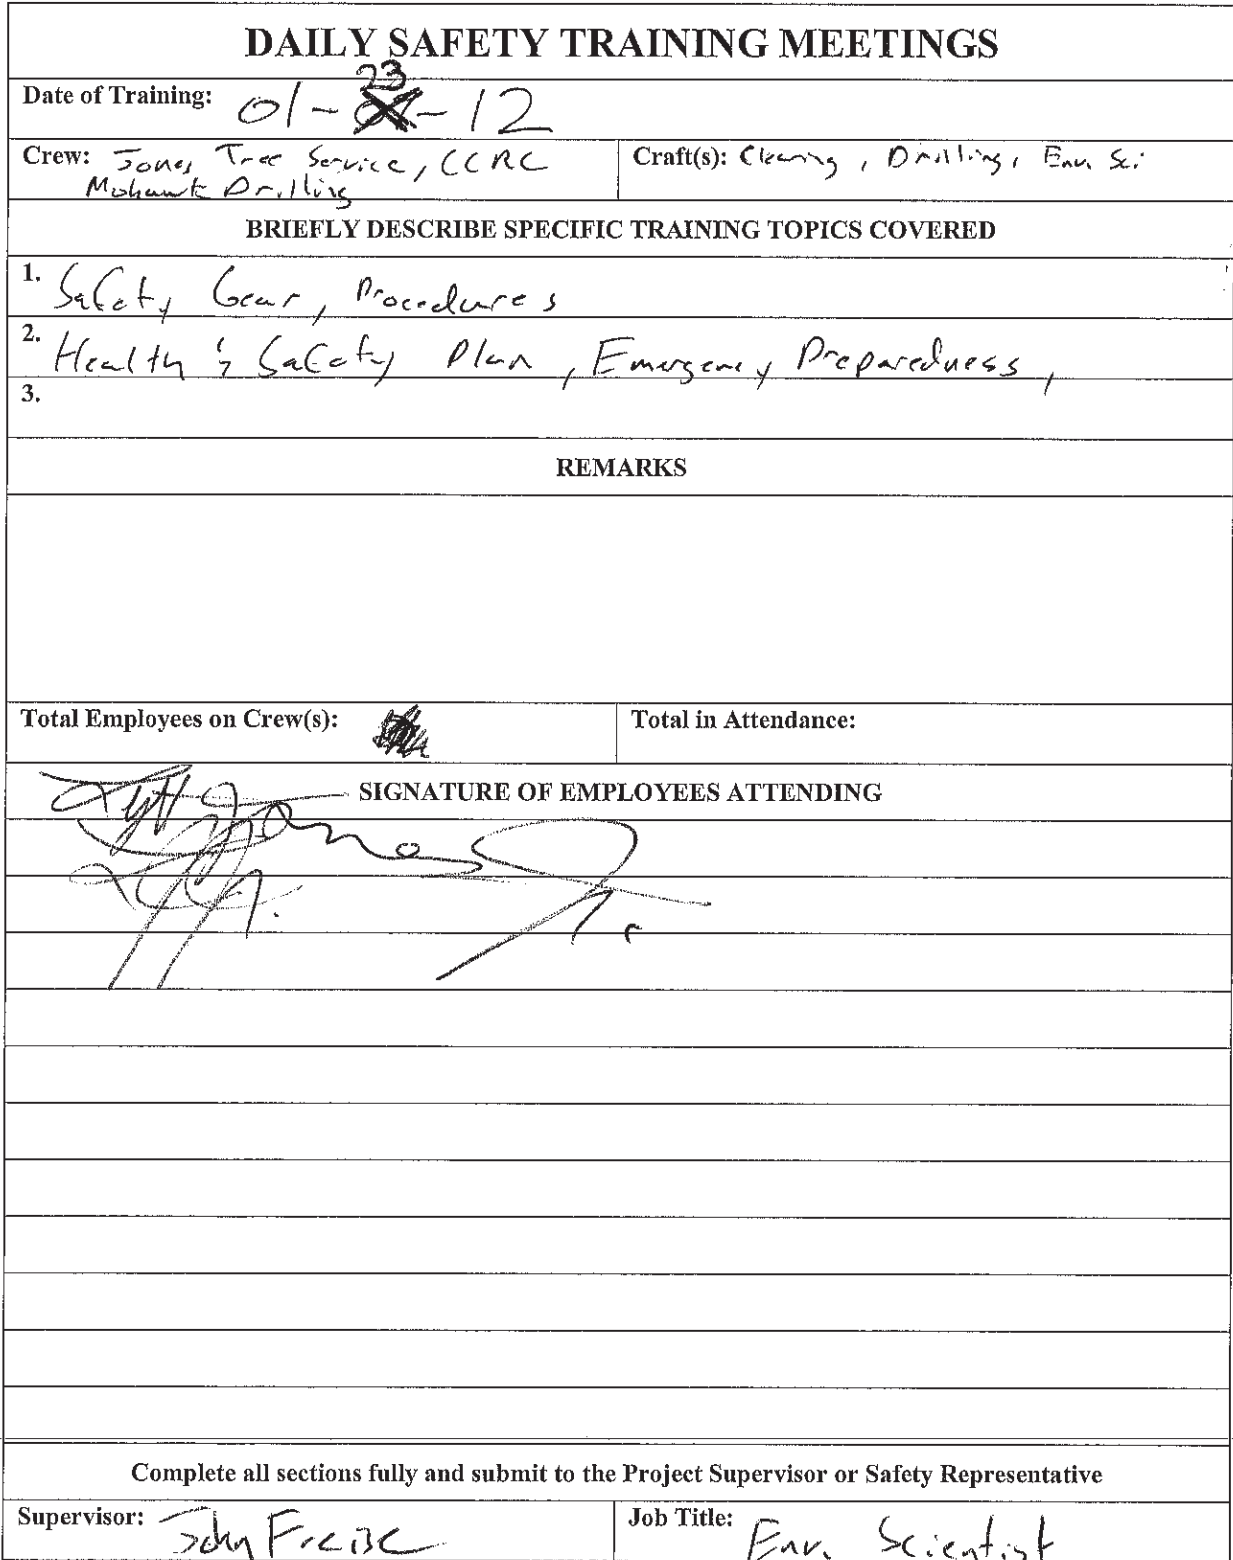 DAILY SAFETY TRAINING MEETINGS
Date of Training: 01-23-12
Crew: Jones Tree Service, CCRC
Mohawk Drilling
Craft(s): Clearing, Drilling, Env. Sci
BRIEFLY DESCRIBE SPECIFIC TRAINING TOPICS COVERED
1. Safety Gear, Procedures
2. Health & Safety Plan, Emergency Preparedness,
3.
REMARKS
Total Employees on Crew(s):
Total in Attendance:
SIGNATURE OF EMPLOYEES ATTENDING
Jones
Complete all sections fully and submit to the Project Supervisor or Safety Representative
Supervisor: John Freise
Job Title: Env. Scientist